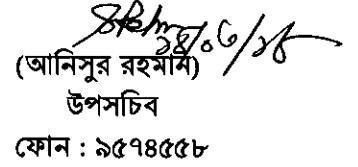 (আনিসুর রহমান)
উপসচিব
ফোন : ৯৫৭৪৫৫৮